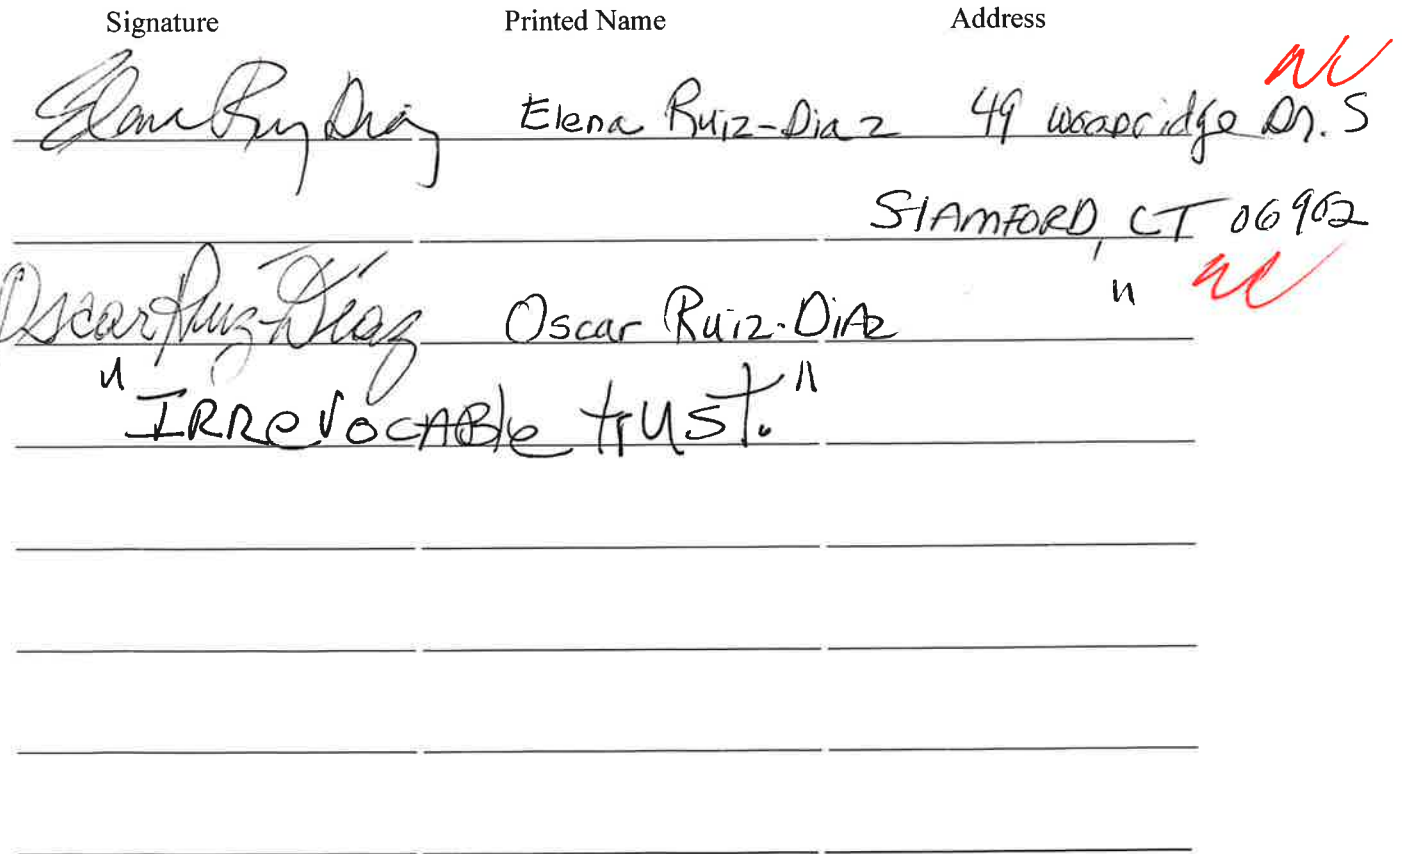 Signature Printed Name Address
Elena Ruiz Diaz Elena Ruiz-Diaz 49 Woodridge Dr. S
STAMFORD, CT 06902
Oscar Ruiz-Díaz Oscar Ruiz-DiAz "
"IRReVocABle trUST."